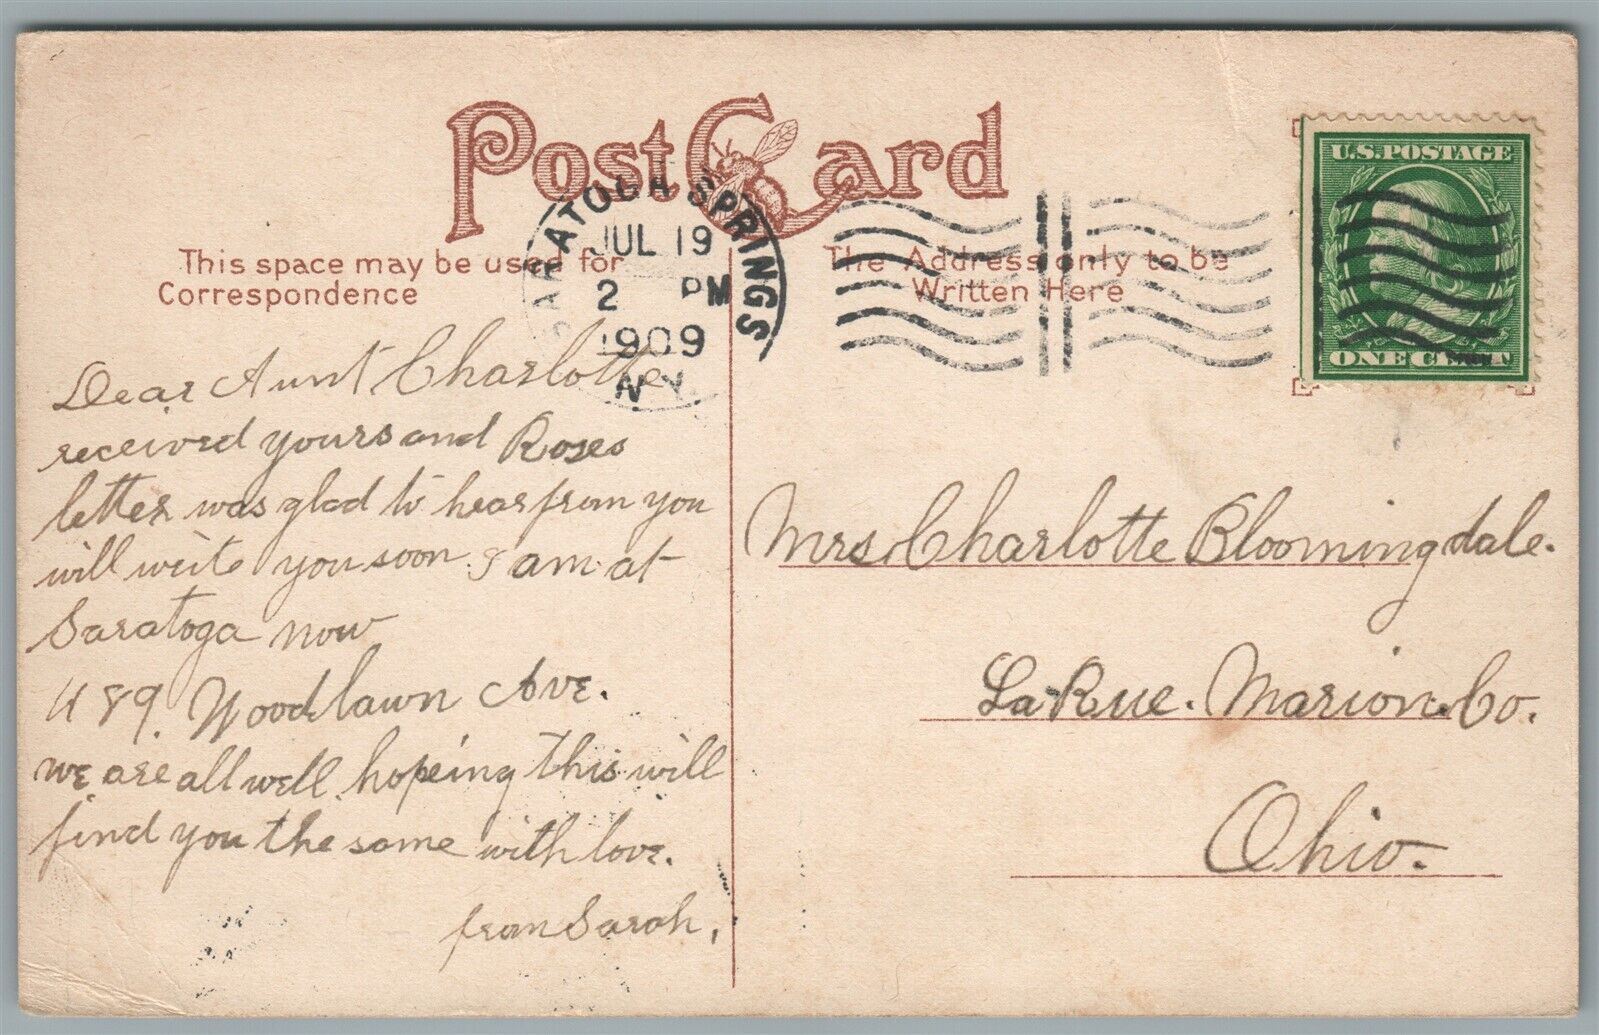 Post Card
U.S. POSTAGE
ONE CENT
SARATOGA SPRINGS
JUL 19
2 PM
1909
N.Y.
This space may be used for
Correspondence
The Address only to be
Written Here
Dear Aunt Charlotte
received yours and Roses
letter was glad to hear from you
will write you soon. I am at
Saratoga now
489. Woodlawn Ave.
we are all well hopeing this will
find you the same with love.
from Sarah,
Mrs. Charlotte Bloomingdale.
LaRue. Marion. Co.
Ohio.